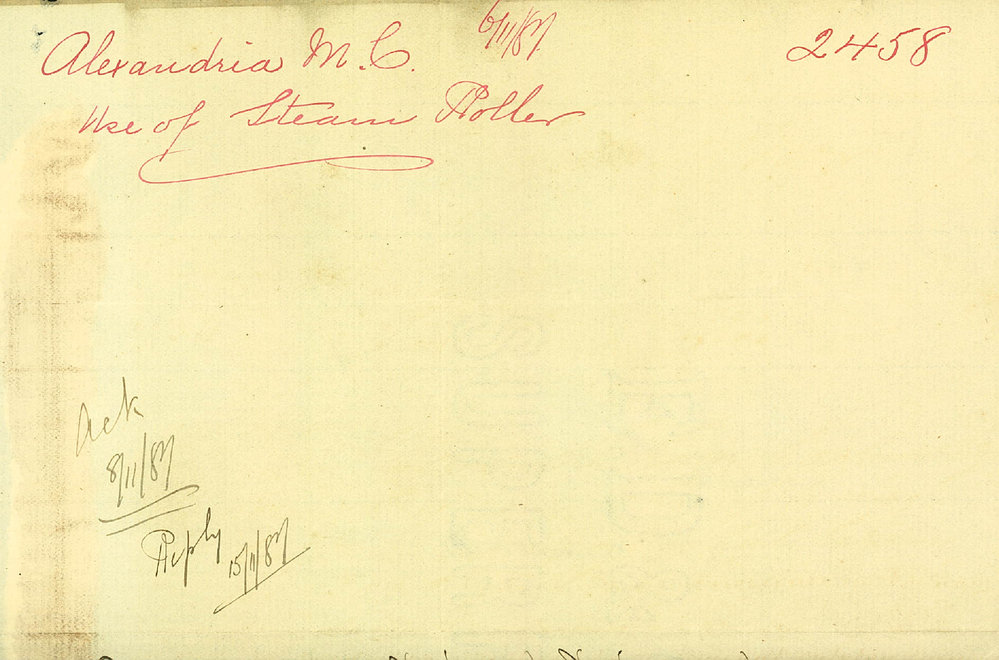 Alexandria M.C. 6/11/87 2458
Use of Steam Roller
Ack
8/11/87
Reply 15/11/87